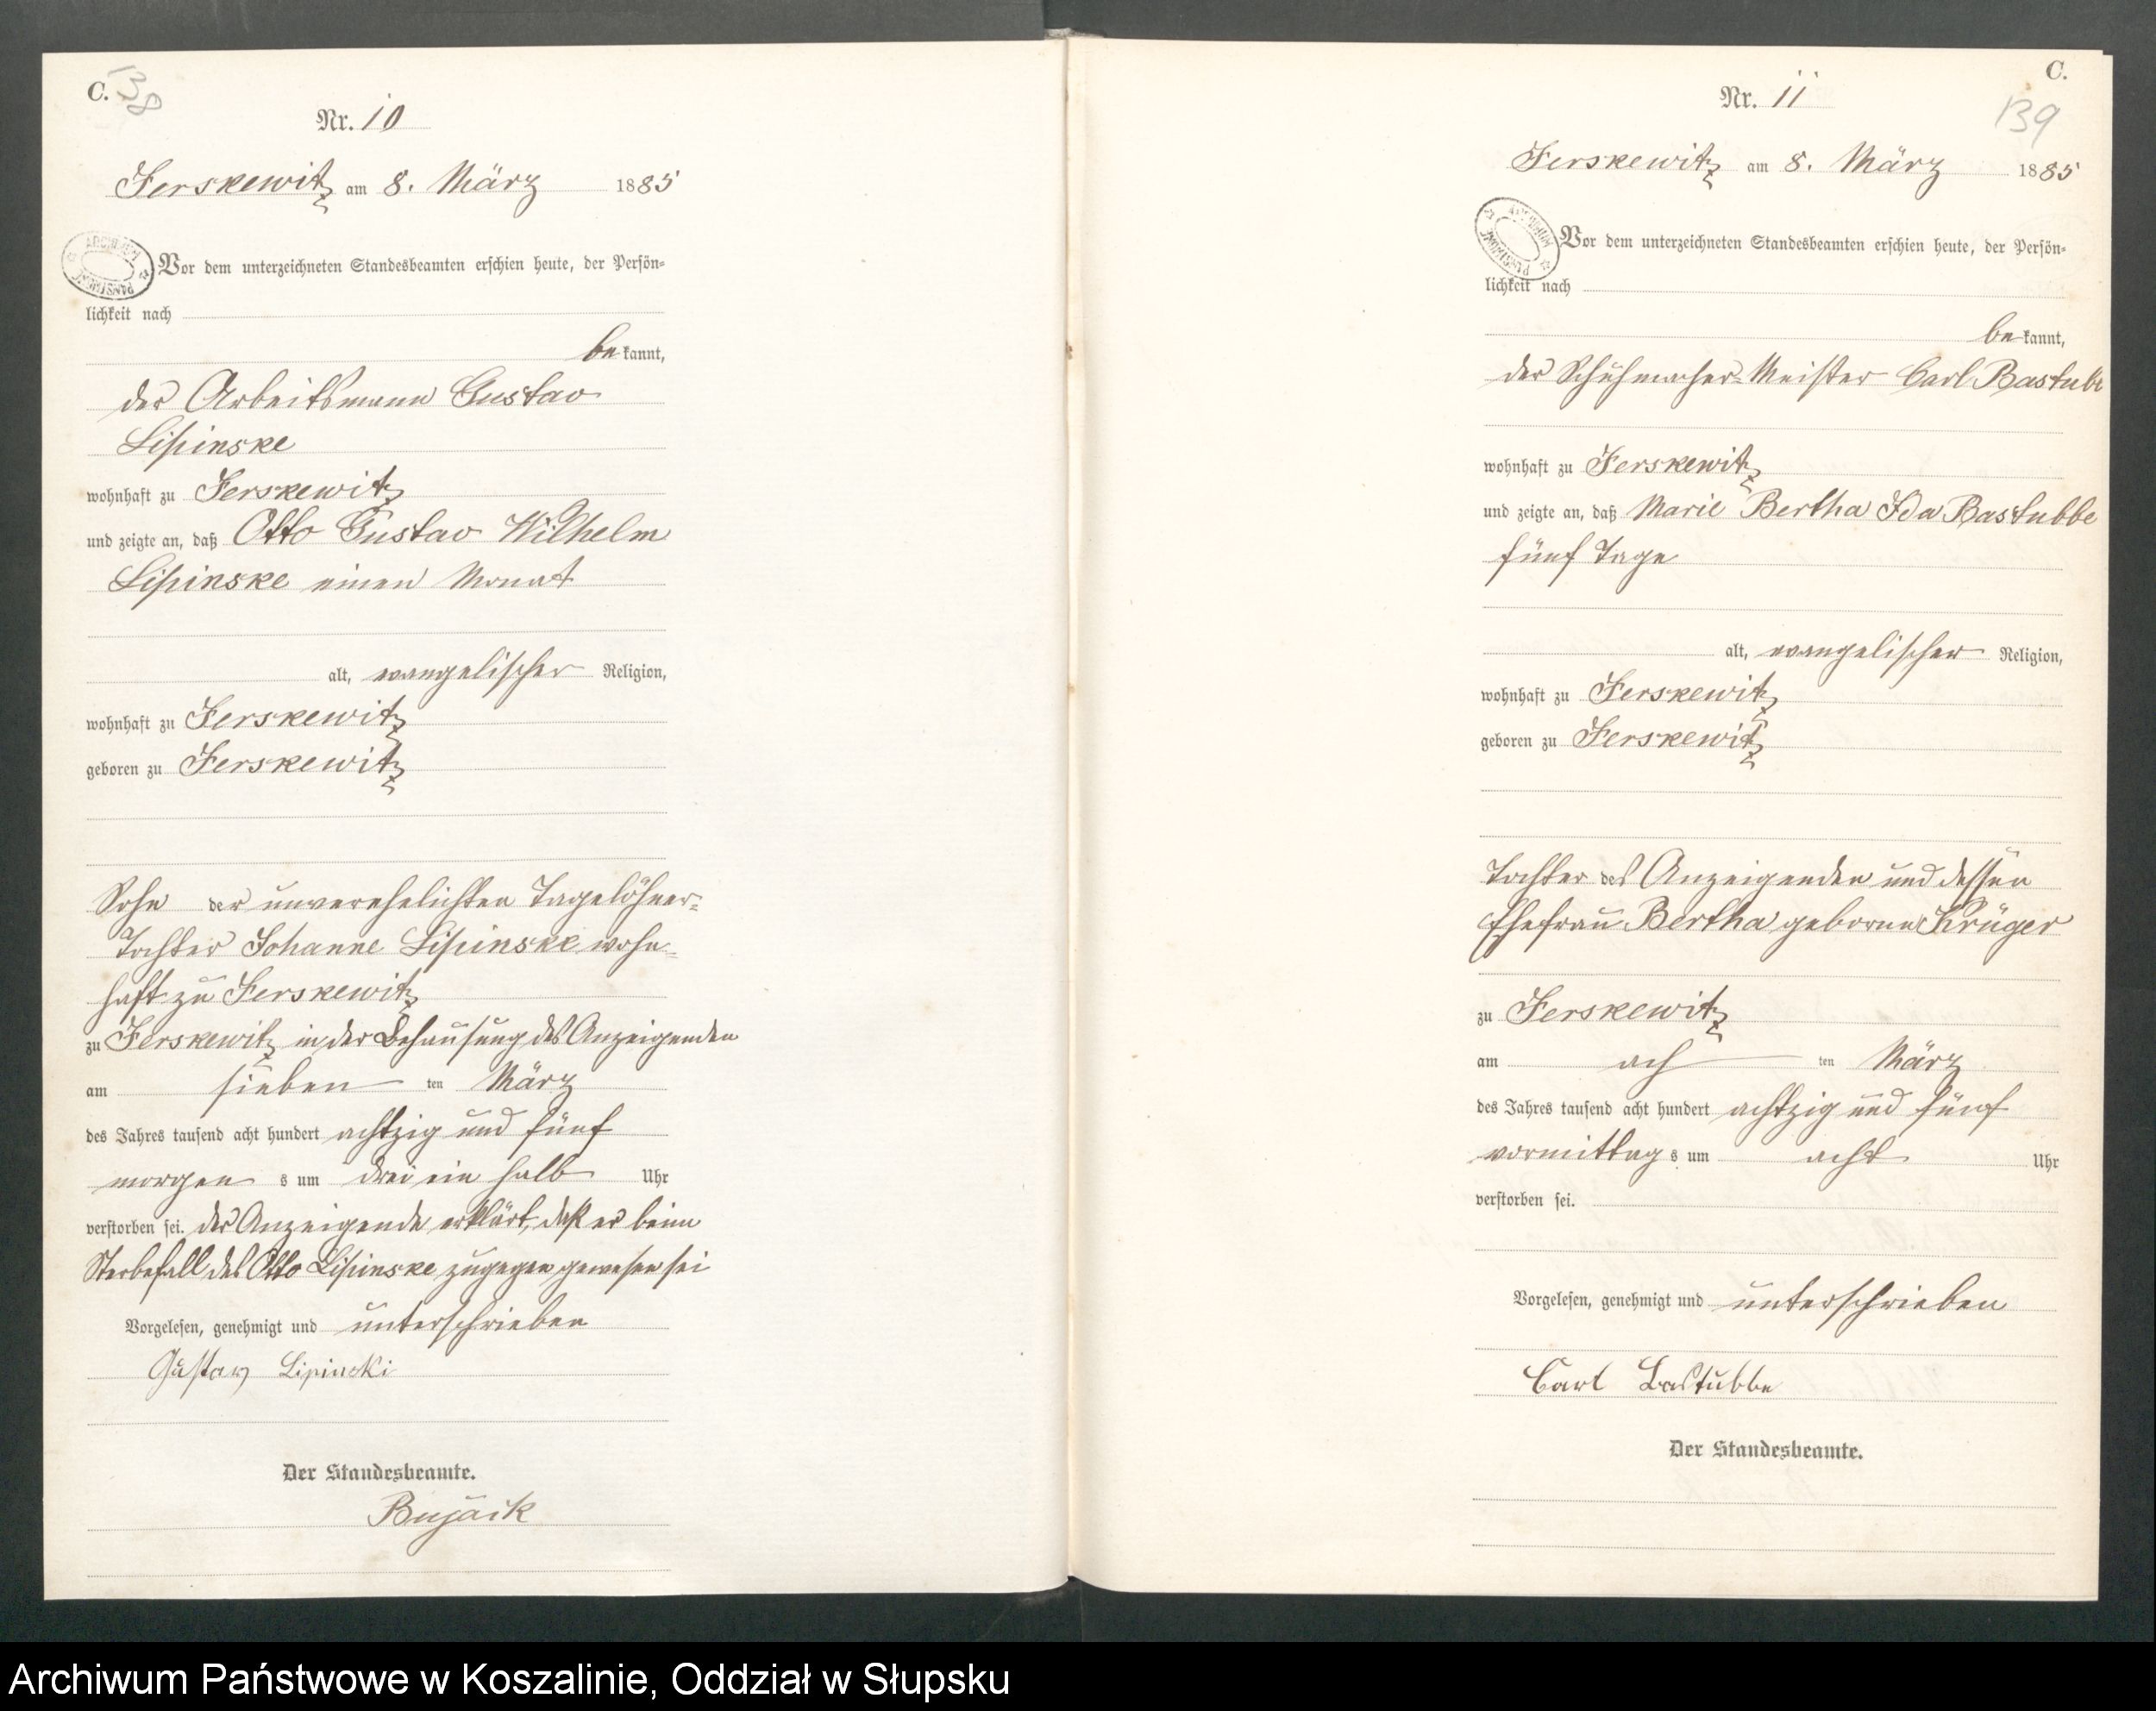 C. 138
Nr. 10
Ferskewitz am 8. März 1885
Vor dem unterzeichneten Standesbeamten erschien heute, der Persön-
lichkeit nach
be kannt,
der Arbeitsmann Gustav
Lipinske
wohnhaft zu Ferskewitz
und zeigte an, daß Otto Gustav Wilhelm
Lipinske einen Monat
alt, evangelischer Religion,
wohnhaft zu Ferskewitz
geboren zu Ferskewitz
Sohn der unverehelichten Tagelöhner-
Tochter Johanne Lipinske wohn-
haft zu Ferskewitz
zu Ferskewitz in der Behausung des Anzeigenden
am sieben ten März
des Jahres tausend acht hundert achtzig und fünf
morgen s um drei ein halb Uhr
verstorben sei. der Anzeigende erklärt, daß er beim
Sterbefall des Otto Lipinske zugegen gewesen sei
Vorgelesen, genehmigt und unterschrieben
Gustav Lipinski
Der Standesbeamte.
Bujack
C.
139
Nr. 11
Ferskewitz am 8. März 1885
Vor dem unterzeichneten Standesbeamten erschien heute, der Persön-
lichkeit nach
be kannt,
der Schuhmacher-Meister Carl Bastubbe
wohnhaft zu Ferskewitz
und zeigte an, daß Marie Bertha Ida Bastubbe
fünf Tage
alt, evangelischer Religion,
wohnhaft zu Ferskewitz
geboren zu Ferskewitz
Tochter des Anzeigenden und dessen
Ehefrau Bertha geborne Krüger
zu Ferskewitz
am ach ten März
des Jahres tausend acht hundert achtzig und fünf
vormittag s um acht Uhr
verstorben sei.
Vorgelesen, genehmigt und unterschrieben
Carl Bastubbe
Der Standesbeamte.
Archiwum Państwowe w Koszalinie, Oddział w Słupsku